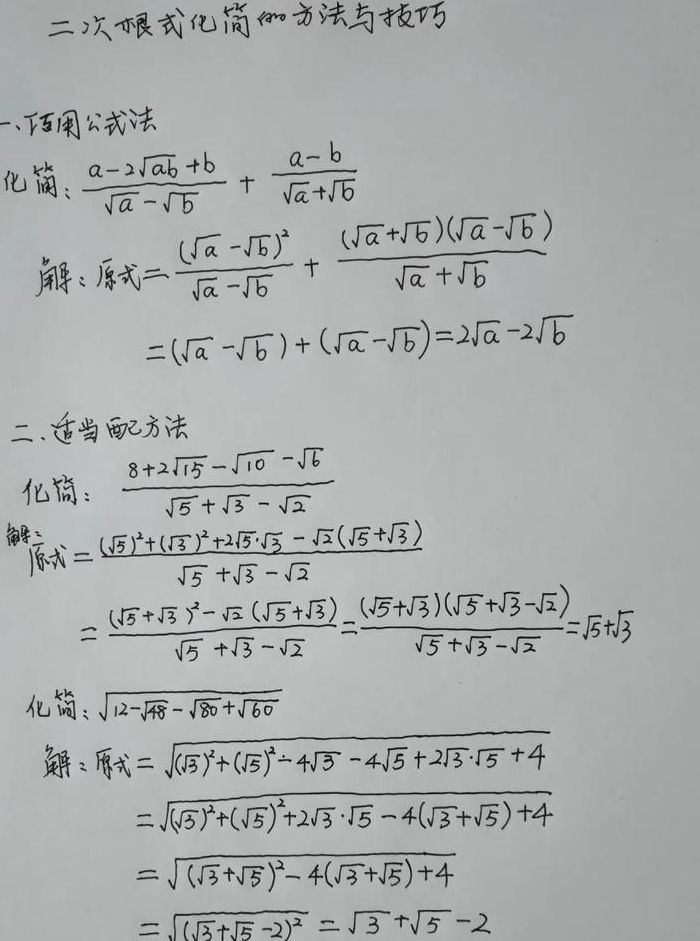 二次根式化简的方法与技巧
一、巧用公式法
化简: (a-2√(ab)+b)/(√a-√b) + (a-b)/(√a+√b)
解:原式=(√a-√b)²/(√a-√b) + (√a+√b)(√a-√b)/(√a+√b)
=(√a-√b)+(√a-√b)=2√a-2√b
二、适当配方法
化简: (8+2√15-√10-√6)/(√5+√3-√2)
解:原式=((√5)²+(√3)²+2√5·√3-√2(√5+√3))/(√5+√3-√2)
=((√5+√3)²-√2(√5+√3))/(√5+√3-√2)=(√5+√3)(√5+√3-√2)/(√5+√3-√2)=√5+√3
化简:√(12-√48-√80+√60)
解:原式=√((√3)²+(√5)²-4√3-4√5+2√3·√5+4)
=√((√3)²+(√5)²+2√3·√5-4(√3+√5)+4)
=√((√3+√5)²-4(√3+√5)+4)
=√((√3+√5-2)²)=√3+√5-2